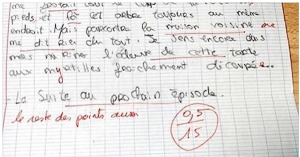 pieds et
et entre toujours au même
endroit. Mais pourtant la maison voisine ne
me dit rien du tout. Je sens encore dans
mes narines l'odeur de cette tarte
aux myrtilles fraichement découpée..
- La Suite au prochain épisode.
le reste des points aussi
0,5
15